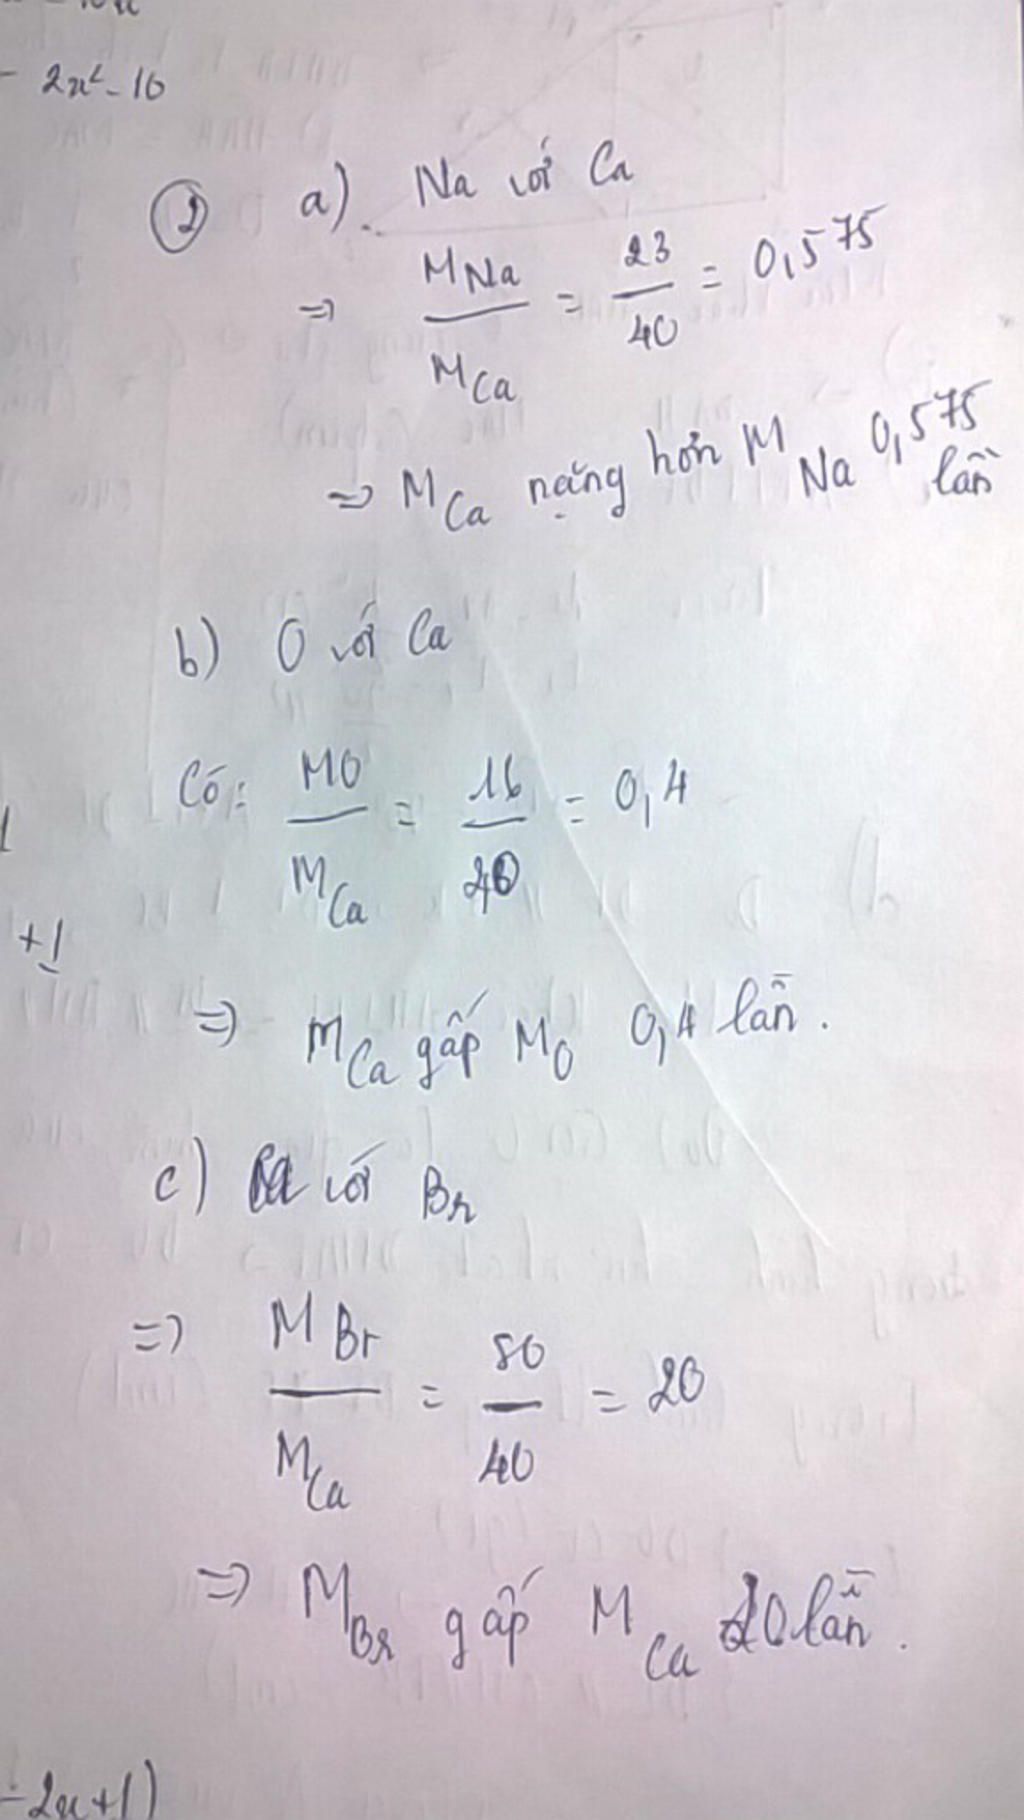 - 2x² - 10
② a) Na với Ca
=> M Na / M Ca = 23 / 40 = 0,575
=> M Ca nặng hơn M Na 0,575 lần
b) O với Ca
Có: MO / M Ca = 16 / 40 = 0,4
+1
=> M Ca gấp M O 0,4 lần.
c) Ca với Br
=> M Br / M Ca = 80 / 40 = 20
=> M Br gấp M Ca 20 lần.
- 2x + 1)